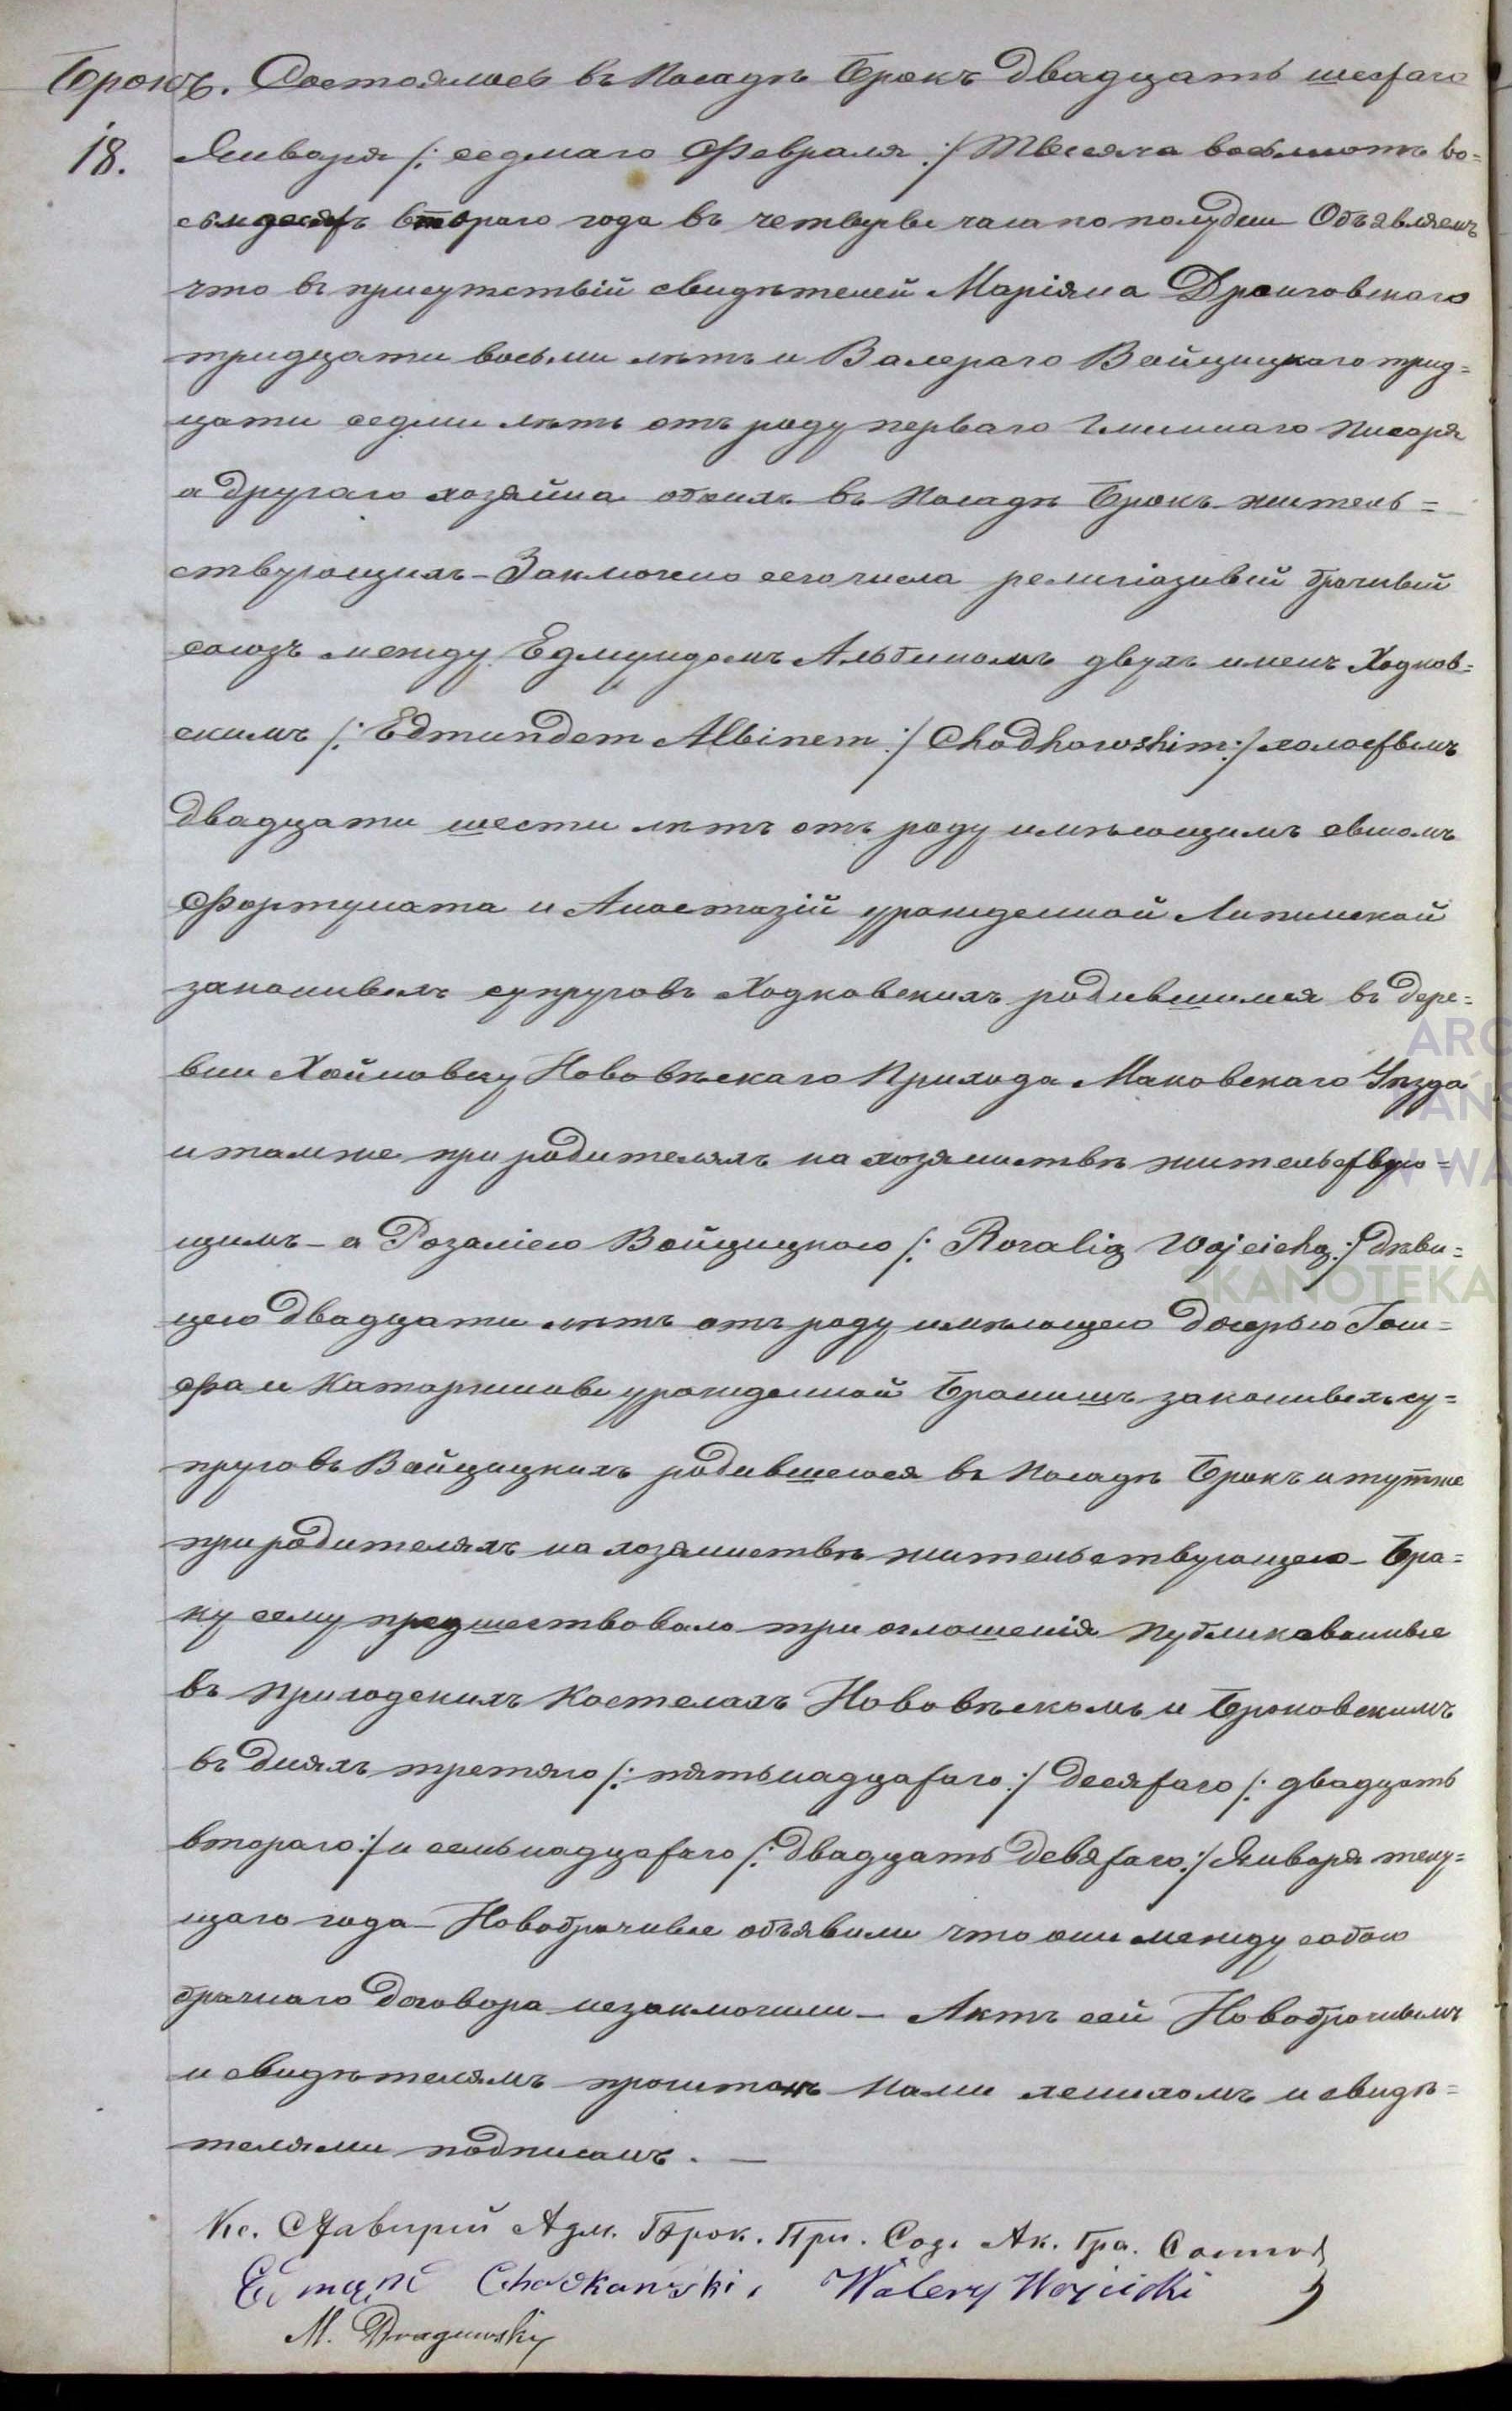 Брокъ. Состоялось въ Посадѣ Брокъ двадцать шестаго
18. Января /: седмаго Февраля :/ Тысяча восьмотъ во=
сьмдесятъ втораго года въ четверы часа по полудни Объявляемъ
что въ присутствій свидѣтелей Маріяна Дронговскаго
тридцати восьми лѣтъ и Валераго Войцицкаго трид=
цати седми лѣтъ отъ роду перваго Гминнаго Писаря
а другаго хозяина обоихъ въ Посадѣ Брокъ житель=
ствующихъ – Заключено сего числа религіозный брачный
союзъ между Едмундомъ Альбиномъ двухъ именъ Ходков=
скимъ /: Edmundem Albinem :/ Chodkowskim :/ холостымъ
двадцати шести лѣтъ отъ роду имѣющимъ сыномъ
Фортуната и Анастазій урожденной Липинской
законныхъ супруговъ Ходковскихъ родившимся въ дере=
вни Хойновку Нововѣскаго Прихода Маковскаго Уѣзда
и тамже при родителяхъ на хозяинствѣ жительствую=
щимъ – а Розаліею Войцицкою /: Rozalią Wojcicką :/ дѣви=
цею двадцати лѣтъ отъ роду имѣющею дочерью Іоси=
фа и Катаржины урожденной Бранишъ законныхъ су=
пруговъ Войцицкихъ родившеюся въ Посадѣ Брокъ и тутже
при родителяхъ на хозяинствѣ жительствующею – Бра=
ку сему предшествовало три оглошенія Публикованные
въ Приходскихъ Костелахъ Нововѣскомъ и Броковскимъ
въ дняхъ третяго /: пятьнадцатаго :/ десятаго /: двадцать
втораго :/ и семьнадцатаго /: двадцать девятаго :/ Января теку=
щаго года – Новобрачные объявили что они между собою
брачнаго договора незаключили – Актъ сей Новобрачнымъ
и свидѣтелямъ прочитанъ Нами женихомъ и свидѣ=
телями подписанъ. –
Кс. Адм. Брок. При. Сод. Ак. Гра. Состоя
Edmund Chodkowski, Walery Wojcicki
M. Dragowski
ARC
PAŃS
W WA
SKANOTEKA